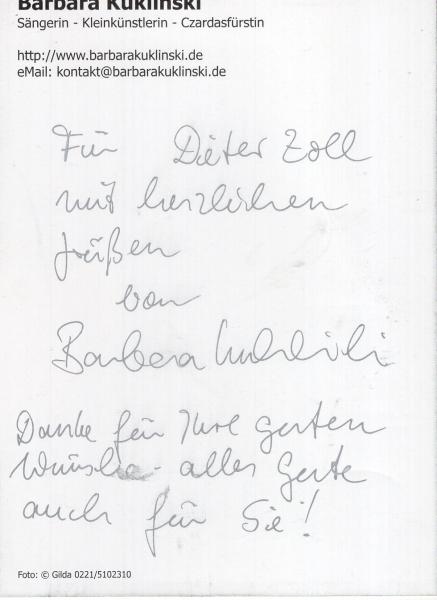 Barbara Kuklinski
Sängerin - Kleinkünstlerin - Czardasfürstin
http://www.barbarakuklinski.de
eMail: kontakt@barbarakuklinski.de
Für Dieter Zoll
mit herzlichen
Grüßen
von
Barbara Kuklinski
Danke für Ihre guten
Wünsche - alles Gute
auch für Sie!
Foto: © Gilda 0221/5102310